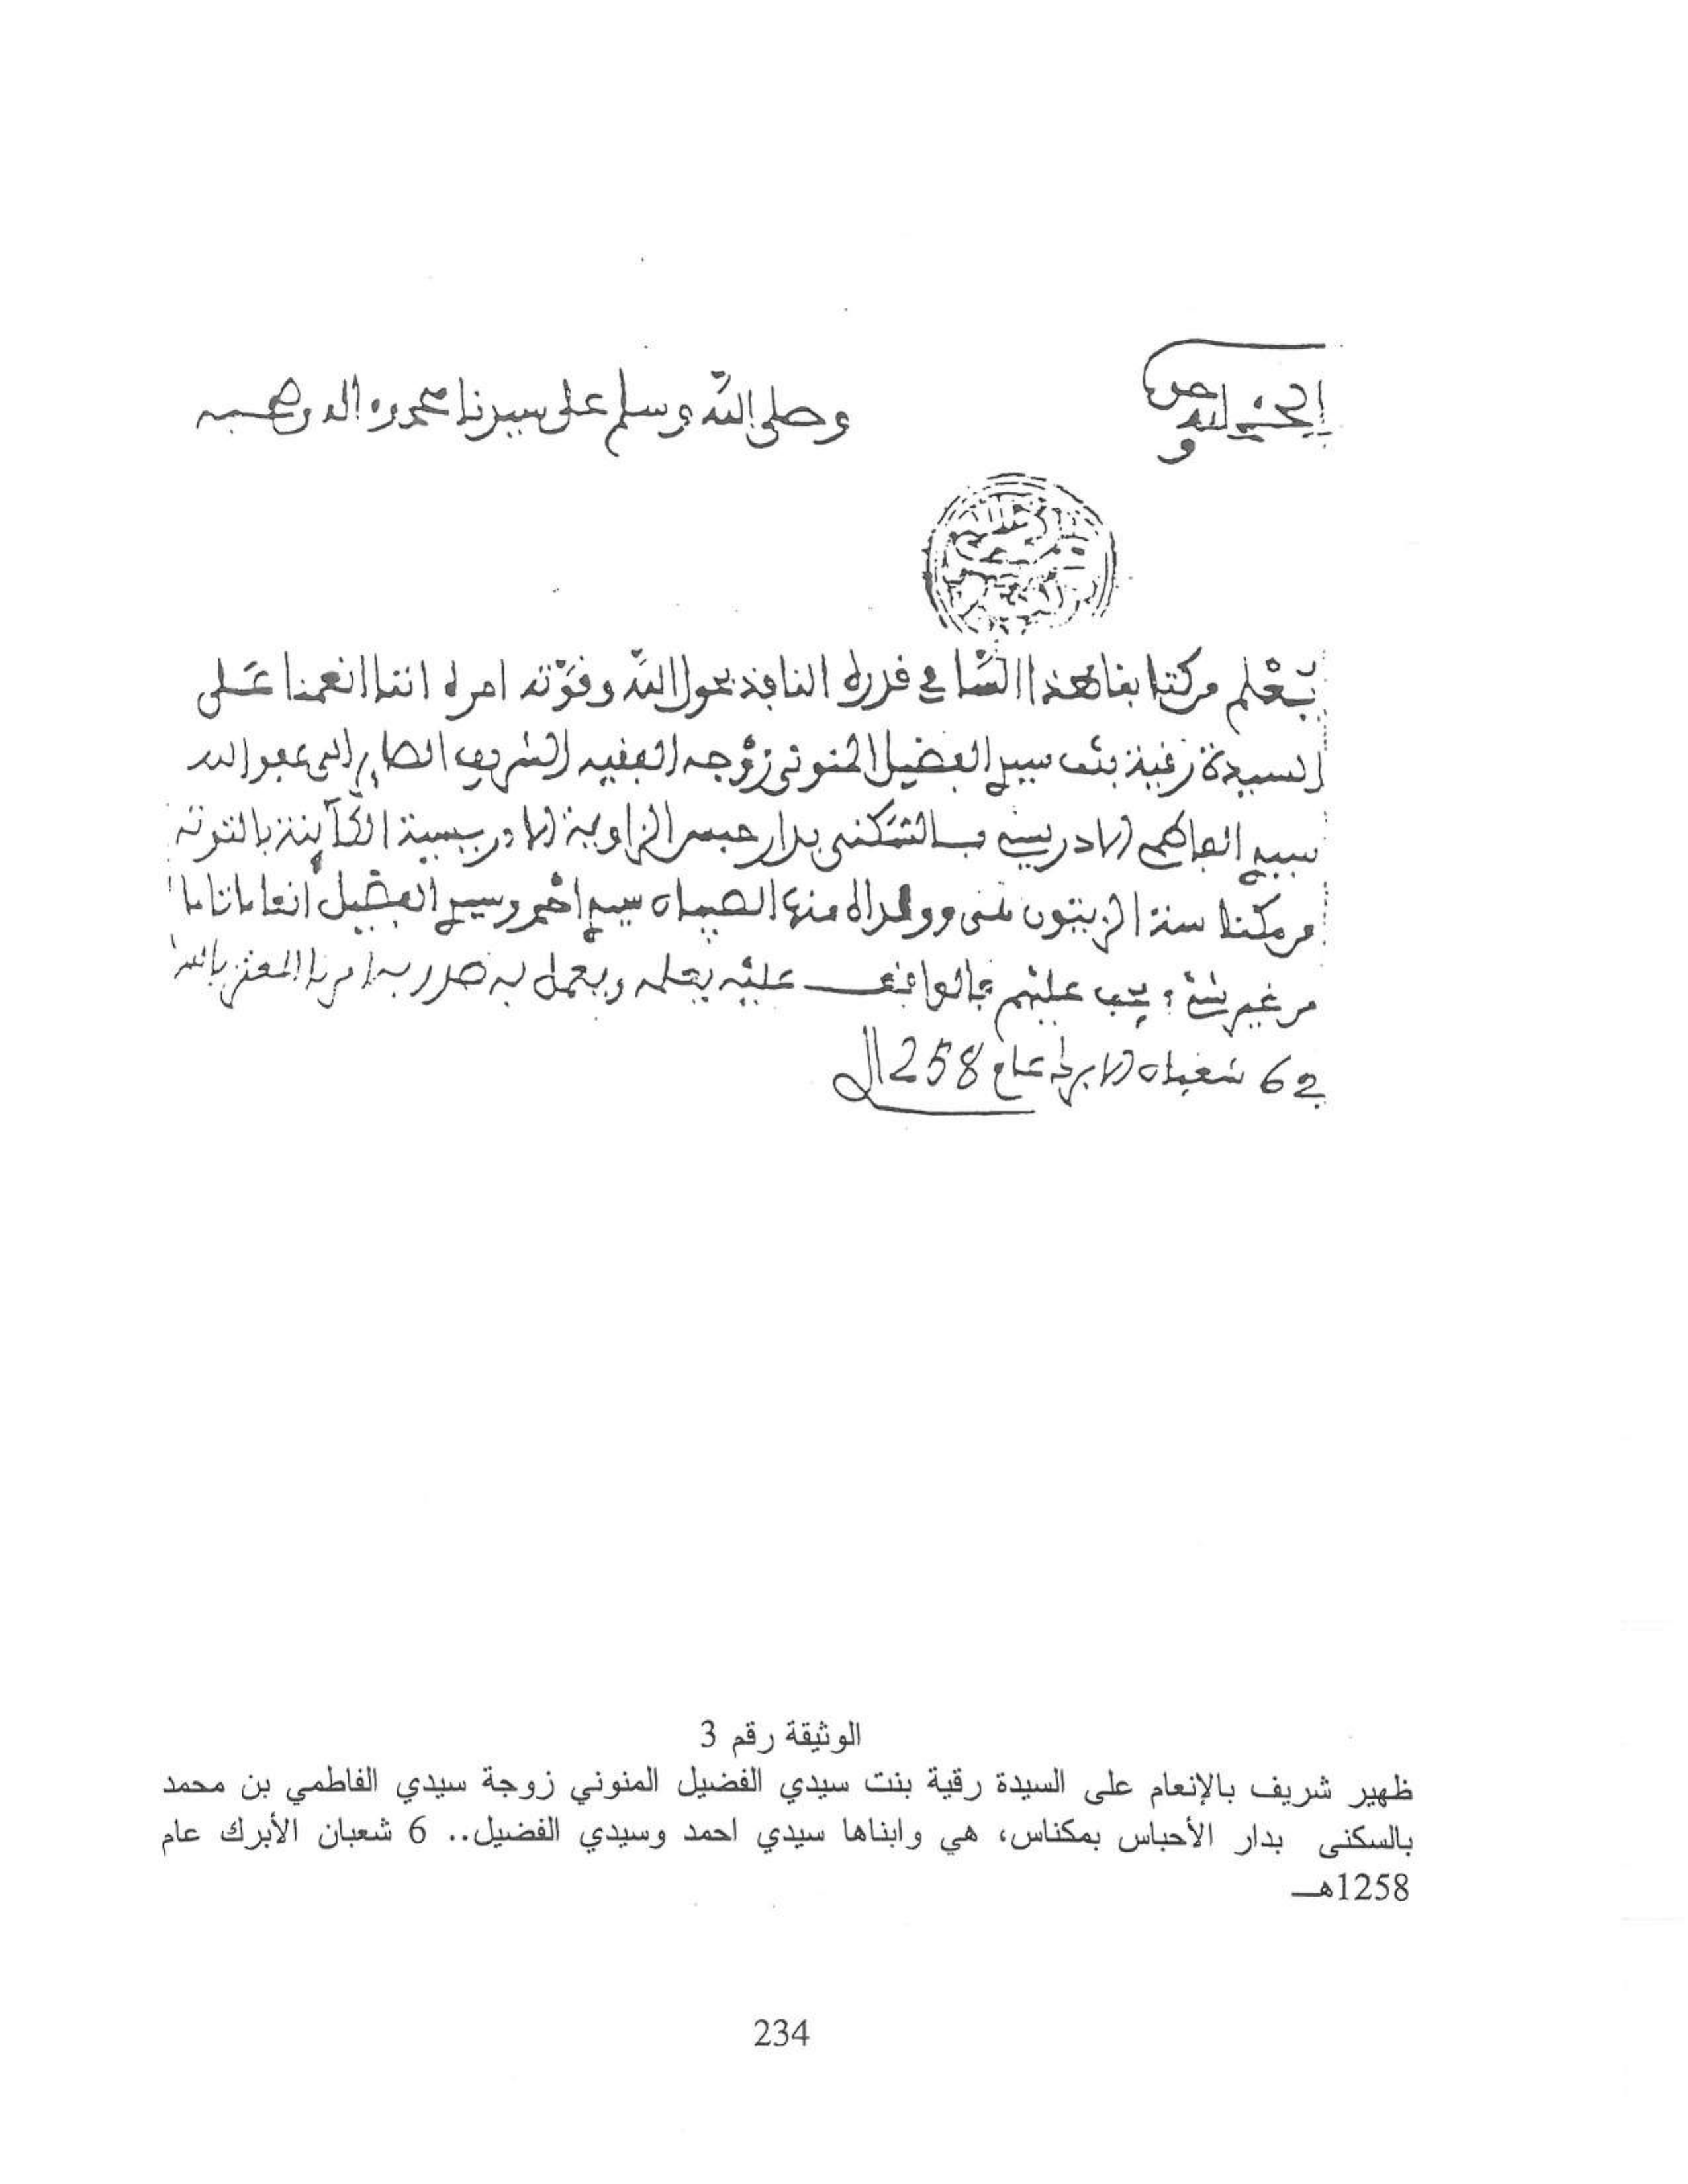 الحمد لله وحده
وصلى الله وسلم على سيدنا محمد وءاله وصحبه
يعلم من كتابنا هذا السامي قدره النافذ بحول الله وقوته امره اننا انعمنا على
السيدة رقية بنت سيدي الفضيل المنوني زوجه الفقيه الشريف الصاير الى عفو الله
سيدي الفاطمي الادريسي بالسكنى بدار حبس الزاوية الادريسية الكآينة بالتوتة
من مكناسة الزيتون هي وولداه منها الصبيان سيدي احمد وسيدي الفضيل انعاما تاما
من غير شيء يجب عليهم فالواقف عليه يعلمه ويعمل به صدر به امرنا المعتز بالله
في 6 شعبان الابرك عام 1258
الوثيقة رقم 3
ظهير شريف بالإنعام على السيدة رقية بنت سيدي الفضيل المنوني زوجة سيدي الفاطمي بن محمد
بالسكنى بدار الأحباس بمكناس، هي وابناها سيدي احمد وسيدي الفضيل.. 6 شعبان الأبرك عام
1258هـ
234